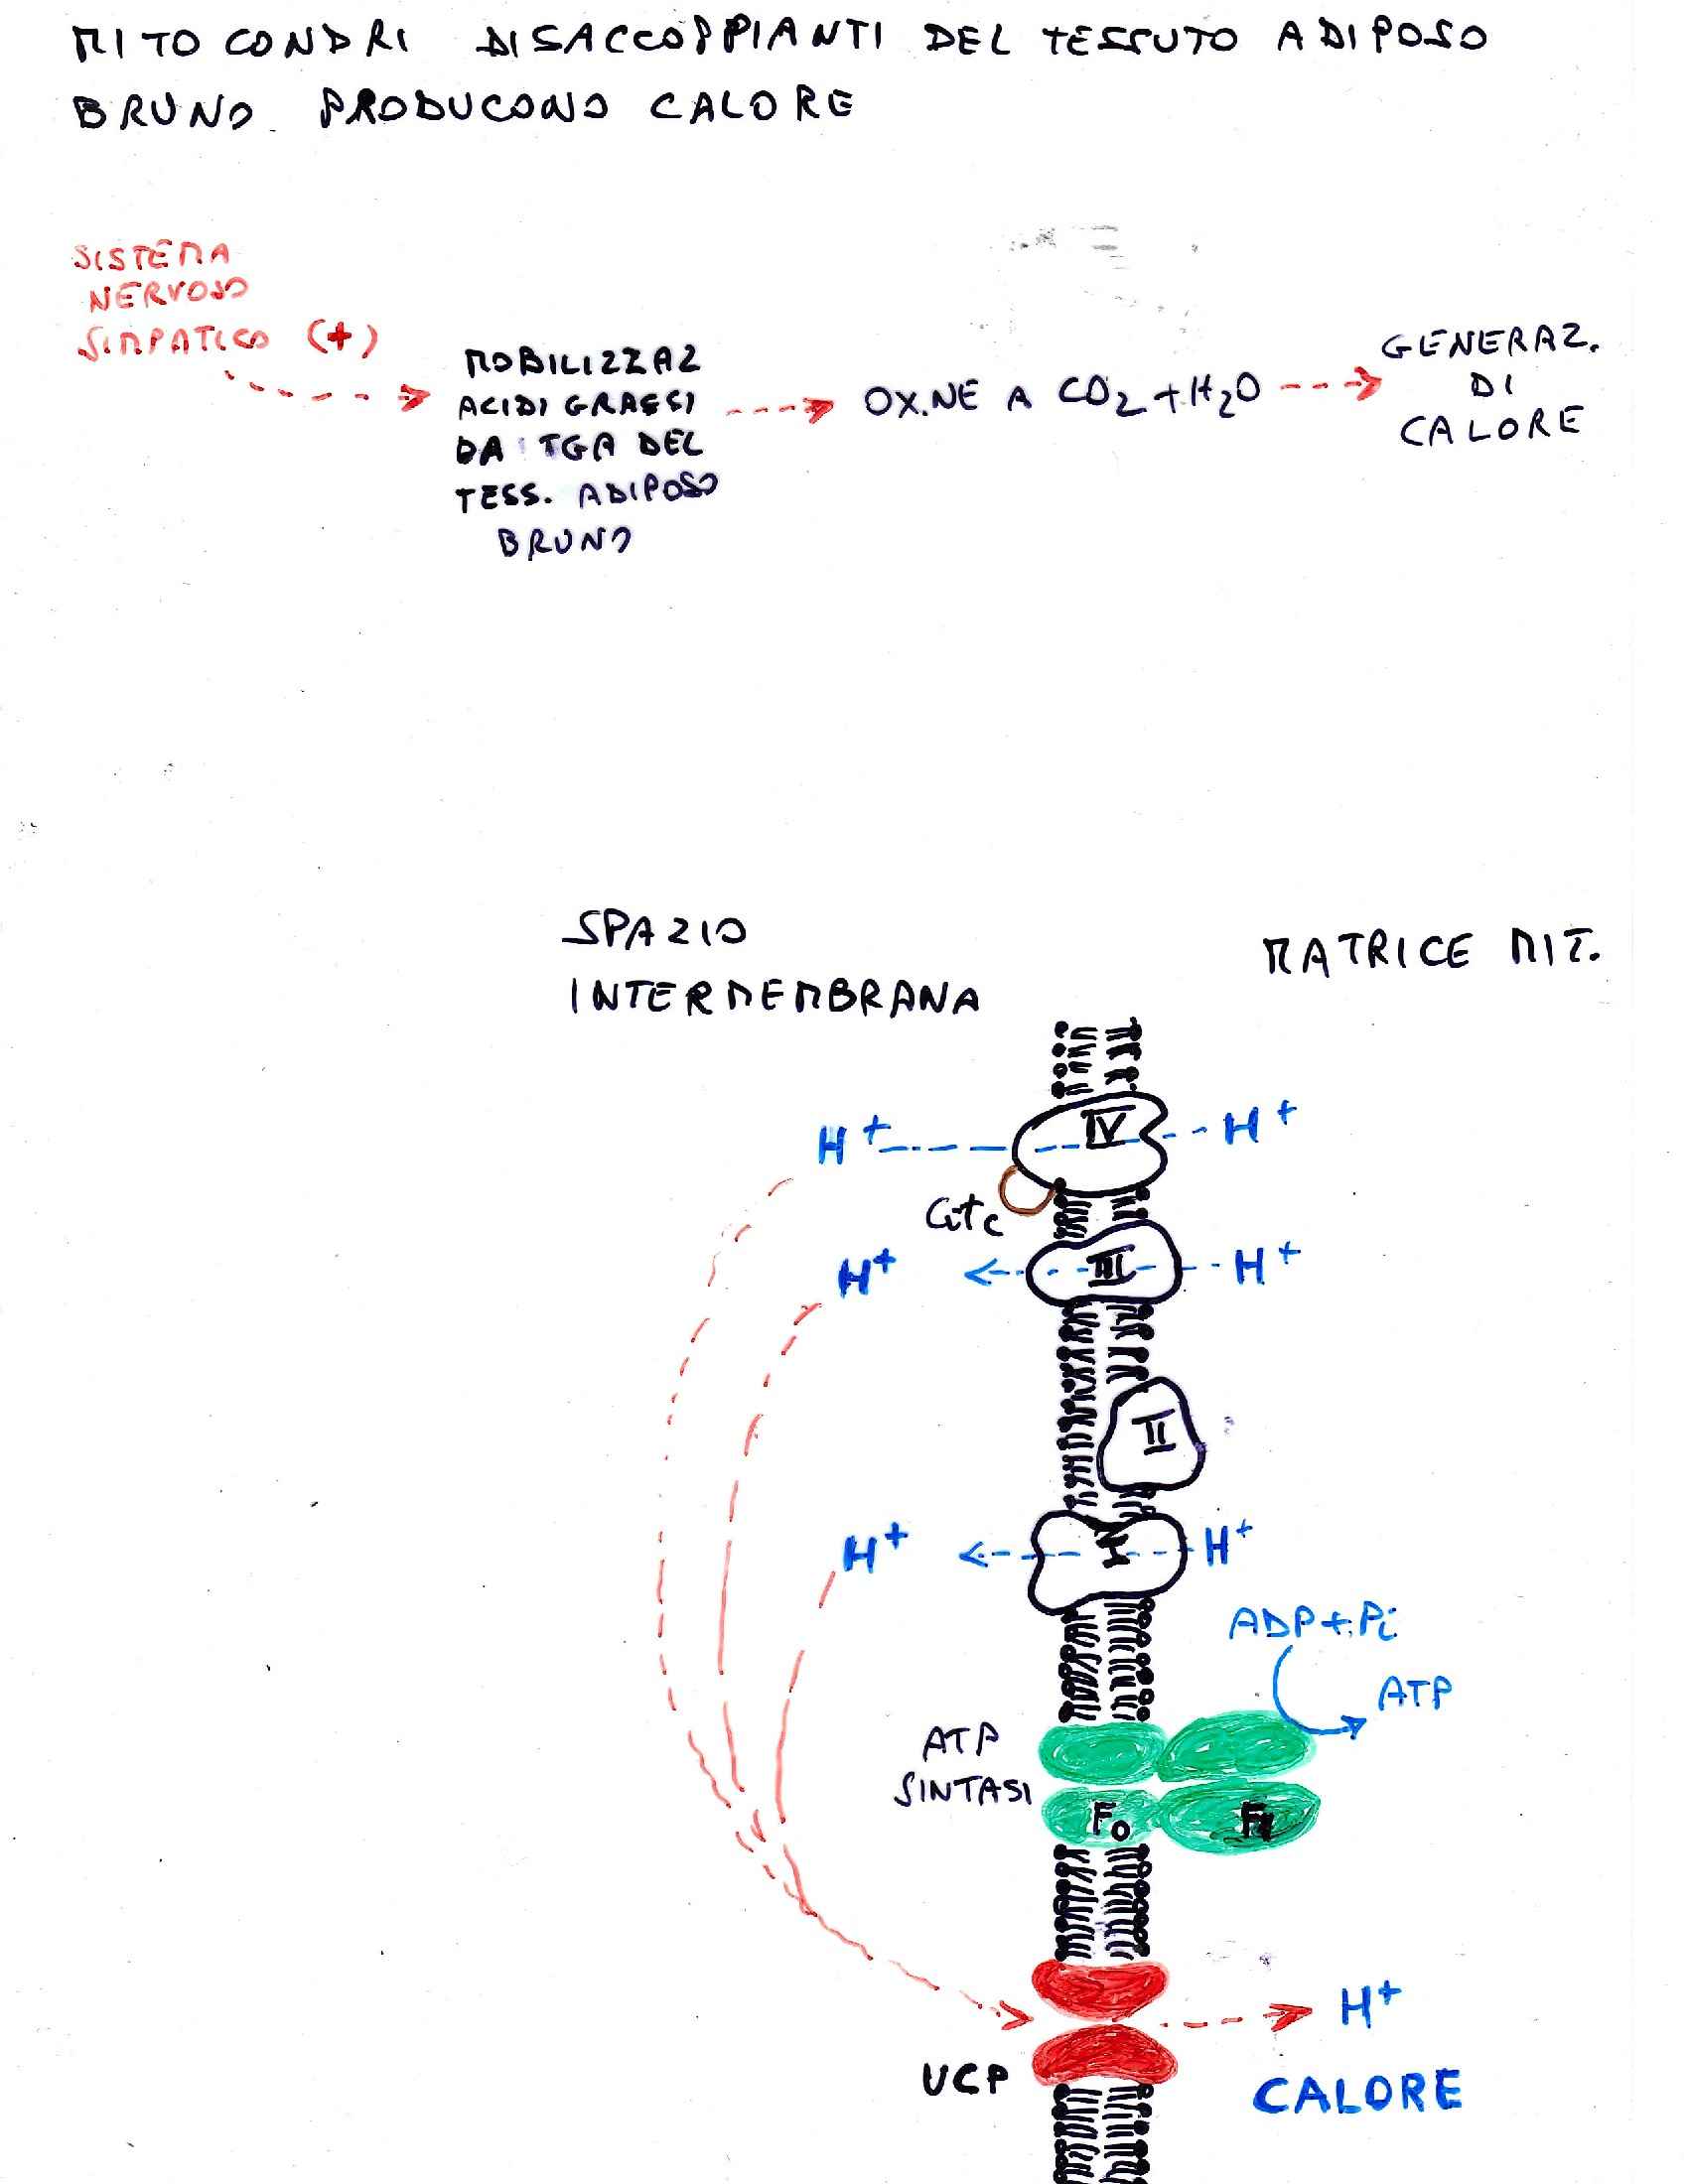 MITOCONDRI DISACCOPPIANTI DEL TESSUTO ADIPOSO
BRUNO PRODUCONO CALORE
SISTEMA
NERVOSO
SIMPATICO (+)
MOBILIZZAZ
ACIDI GRASSI
DA TGA DEL
TESS. ADIPOSO
BRUNO
OX.NE A CO2 + H2O
GENERAZ.
DI
CALORE
SPAZIO
INTERMEMBRANA
MATRICE MIT.
H+ IV H+
Cit c
H+ III H+
II
H+ I H+
ADP + Pi
ATP
ATP
SINTASI
Fo F1
H+
UCP
CALORE